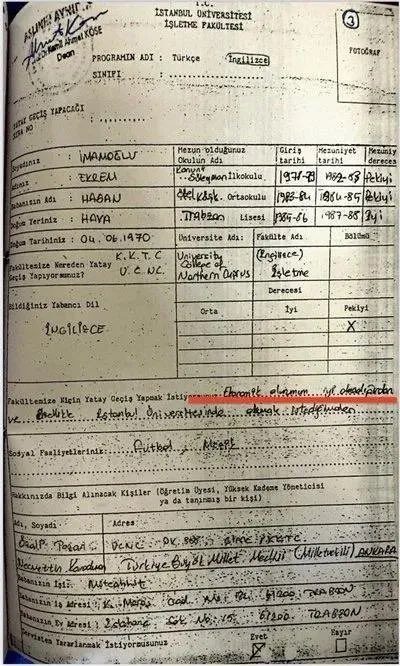 T.C.
İSTANBUL ÜNİVERSİTESİ
İŞLETME FAKÜLTESİ
3
ASLININ AYNIDIR
Prof. Dr. Kemal Ahmet KÖSE
Dean
PROGRAMIN ADI : Türkçe İngilizce
FOTOĞRAF
SINIFI :
YATAY GEÇİŞ YAPACAĞI
SIRA NO :
Mezun olduğunuz Okulun Adı Giriş tarihi Mezuniyet tarihi Mezuniyet derecesi
Soyadınız : İMAMOĞLU
Adınız : EKREM
Süleyman İlkokulu
Pekiyi
Babanızın Adı : HASAN
Ortaokulu 1983-84 1984-85 Pekiyi
Doğum Yeriniz : HAVA
Trabzon Lisesi 1985-86 1987-88 İyi
Doğum Tarihiniz : 04.06.1970
Universite Adı: Fakülte Adı Bölümü
Fakültemize Nereden Yatay Geçiş Yapıyorsunuz?
K.K.T.C
U.C.N.C.
University College of Northern Cyprus
(İngilizce) İşletme
Bildiğiniz Yabancı Dil
Derecesi
Orta İyi Pekiyi
İNGİLİZCE
X
Fakültemize Niçin Yatay Geçiş Yapmak İstiyorsunuz: Ekonomik durumun iyi olmadığından
ve özellikle İstanbul Üniversitesinde okumak istediğimden
Sosyal Faaliyetleriniz: Futbol,
Hakkınızda Bilgi Alınacak Kişiler (Öğretim Üyesi, Yüksek Kademe Yöneticisi
ya da tanınmış bir kişi)
Adı, Soyadı Adres
UCNC
Türkiye Büyük Millet Meclisi (Milletvekili) ANKARA
Babanızın İşi: Müteahhit
Babanızın İş Adresi : K. Maraş Cad. No: 61200 TRABZON
Babanızın Ev Adresi : Sok No: 15 61200 TRABZON
Servisten Yararlanmak İstiyormusunuz Evet X Hayır